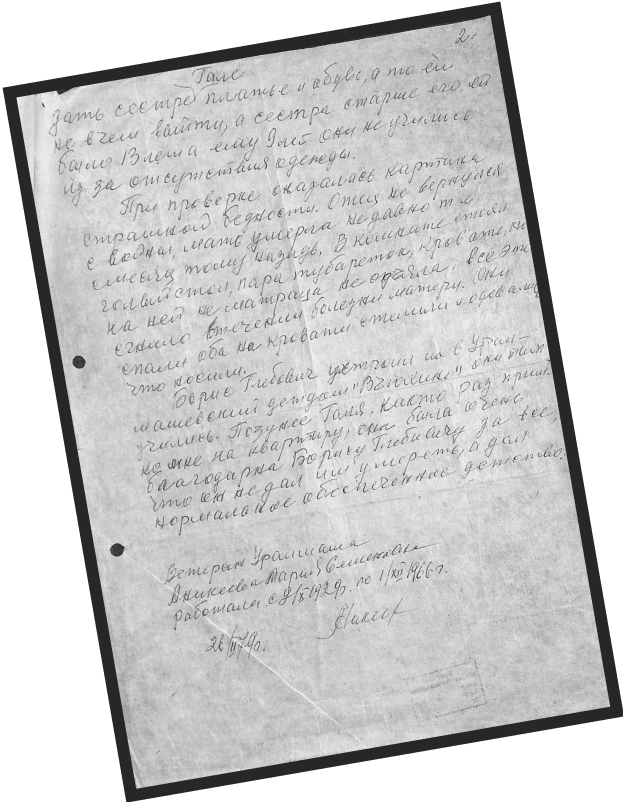 2.
Гале
дать сестре платье и обувь, а то ей
не в чем выйти, а сестра старше его, ей
было 13 лет а ему 9 лет они не учились
из за отсутствия одежды.
При проверке оказалась картина
страшной бедности. Отец не вернулся
с войны, мать умерла недавно т.е
месяц тому назад. В комнате стоял
голый стол, пара тубареток, кровать, но
на ней не матраца не одеяла, все это
сгнило в течении болезни матери. Они
спали оба на кровати стелили и одевались
что носили.
Борис Глебович устроил их в Урал-
машевский детдом "Вьюхино" они там
учились. Позднее Галя, както раз пришла
ко мне на квартиру, она была очень
благодарна Борису Глебовичу за все,
что он не дал им умереть, а дал
нормальное обеспеченное детство.
Ветеран Уралмаша
Аникеева Мария Семеновна
Работала с 9/X 1929г. по 1/XII 1966г.
26/II 79г.